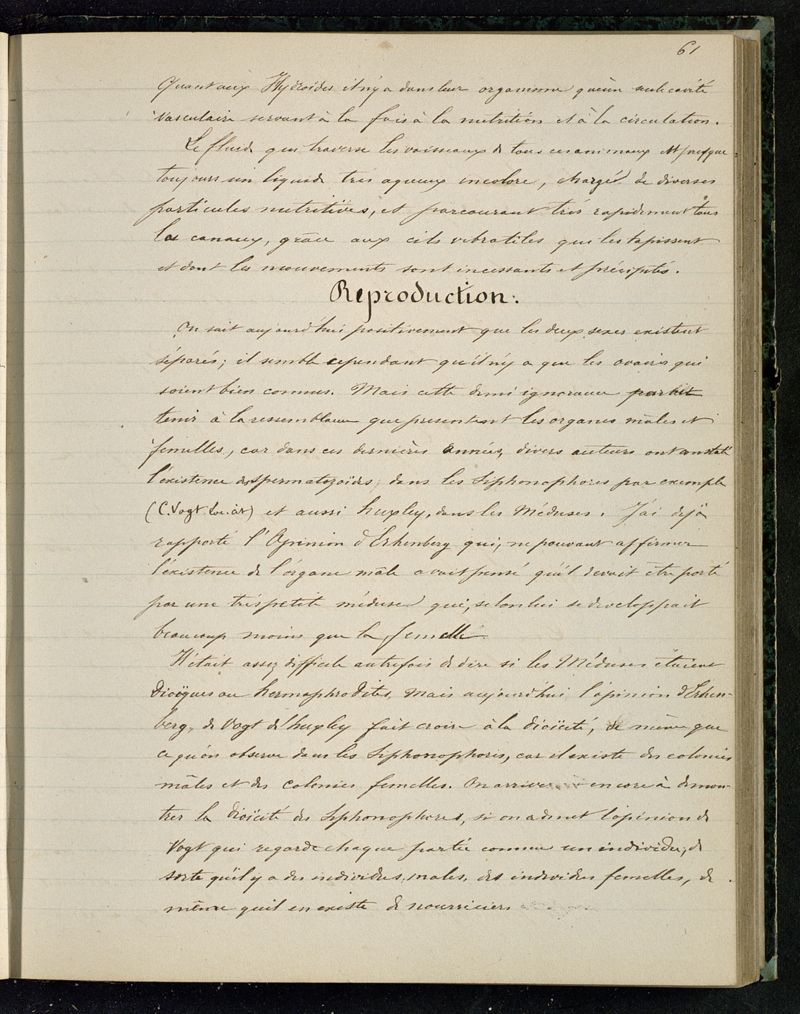 61
Quant aux Hydroïdes il n'y a dans leur organisme qu'une seule cavité
vasculaire servant à la fois à la nutrition et à la circulation.
Le fluide qui traverse les vaisseaux de tous ces animaux est presque
toujours un liquide très aqueux incolore, chargé de diverses
particules nutritives, et parcourant très rapidement tous
les canaux, grâce aux cils vibratiles qui les tapissent
et dont les mouvements sont incessants et précipités.
Reproduction:
On sait aujourd'hui positivement que les deux sexes existent
séparés; il semble cependant qu'il n'y a que les ovaires qui
soient bien connus. Mais cette demi ignorance parait
tenir à la ressemblance que présentent les organes mâles et
femelles, car dans ces dernières années, divers auteurs ont constaté
l'existence de spermatozoïdes; dans les Siphonophores par exemple
(C. Vogt loc. cit) et aussi huxley, dans les Méduses. J'ai déjà
rapporté l'Opinion d'Erhenberg qui, ne pouvant affirmer
l'existence de l'organe mâle avait pensé qu'il devait être porté
par une très petite méduse qui, selon lui se developpait
beaucoup moins que la femelle.
Il était assez difficile autrefois de dire si les Méduses étaient
Dioïques ou hermaphrodites, mais aujourd'hui l'opinion d'Erhen-
berg, de Vogt d'huxley fait croire à la dioïcité, de même que
ce qu'on observe dans les Siphonophores, car il existe des colonies
mâles et des colonies femelles. On arrive encore à démon-
trer la dioïcité des Siphonophores, si on admet l'opinion de
Vogt qui regarde chaque partie comme un individu, de
sorte qu'il y a des individus mâles, des individus femelles, de
même qu'il en existe de nourriciers